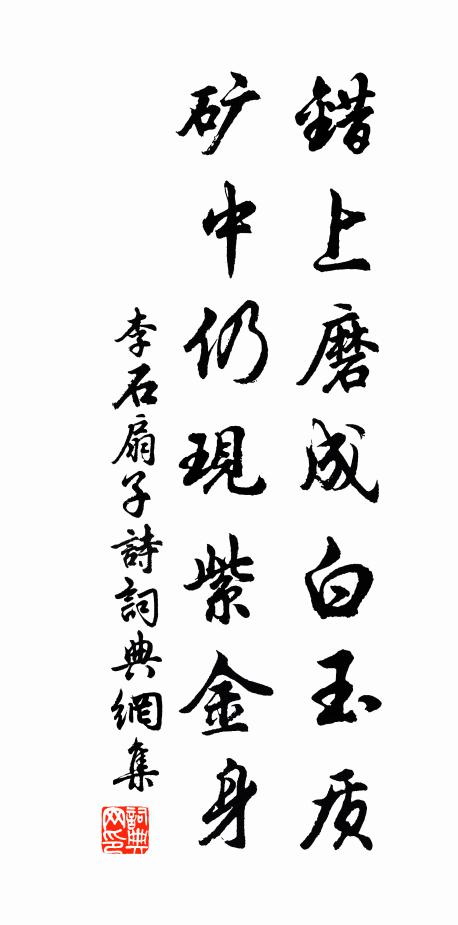 錯上磨成白玉质
矿中仍現紫金身
李石扇子詩詞典網集
詞典网印